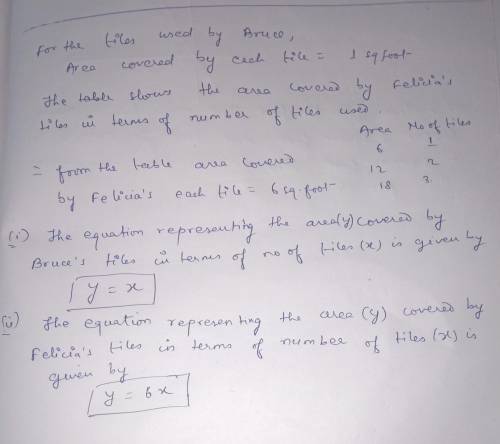 For the tiles used by Bruce,
Area covered by each tile = 1 sq foot
The table shows the area covered by Felicia's
tiles in terms of number of tiles used.
Area No of tiles
6 1
12 2
18 3
= from the table area covered
by Felicia's each tile = 6 sq. foot
(i) The equation representing the area (y) covered by
Bruce's tiles in terms of no of tiles (x) is given by
y = x
(ii) The equation representing the area (y) covered by
Felicia's tiles in terms of number of tiles (x) is
given by
y = 6x